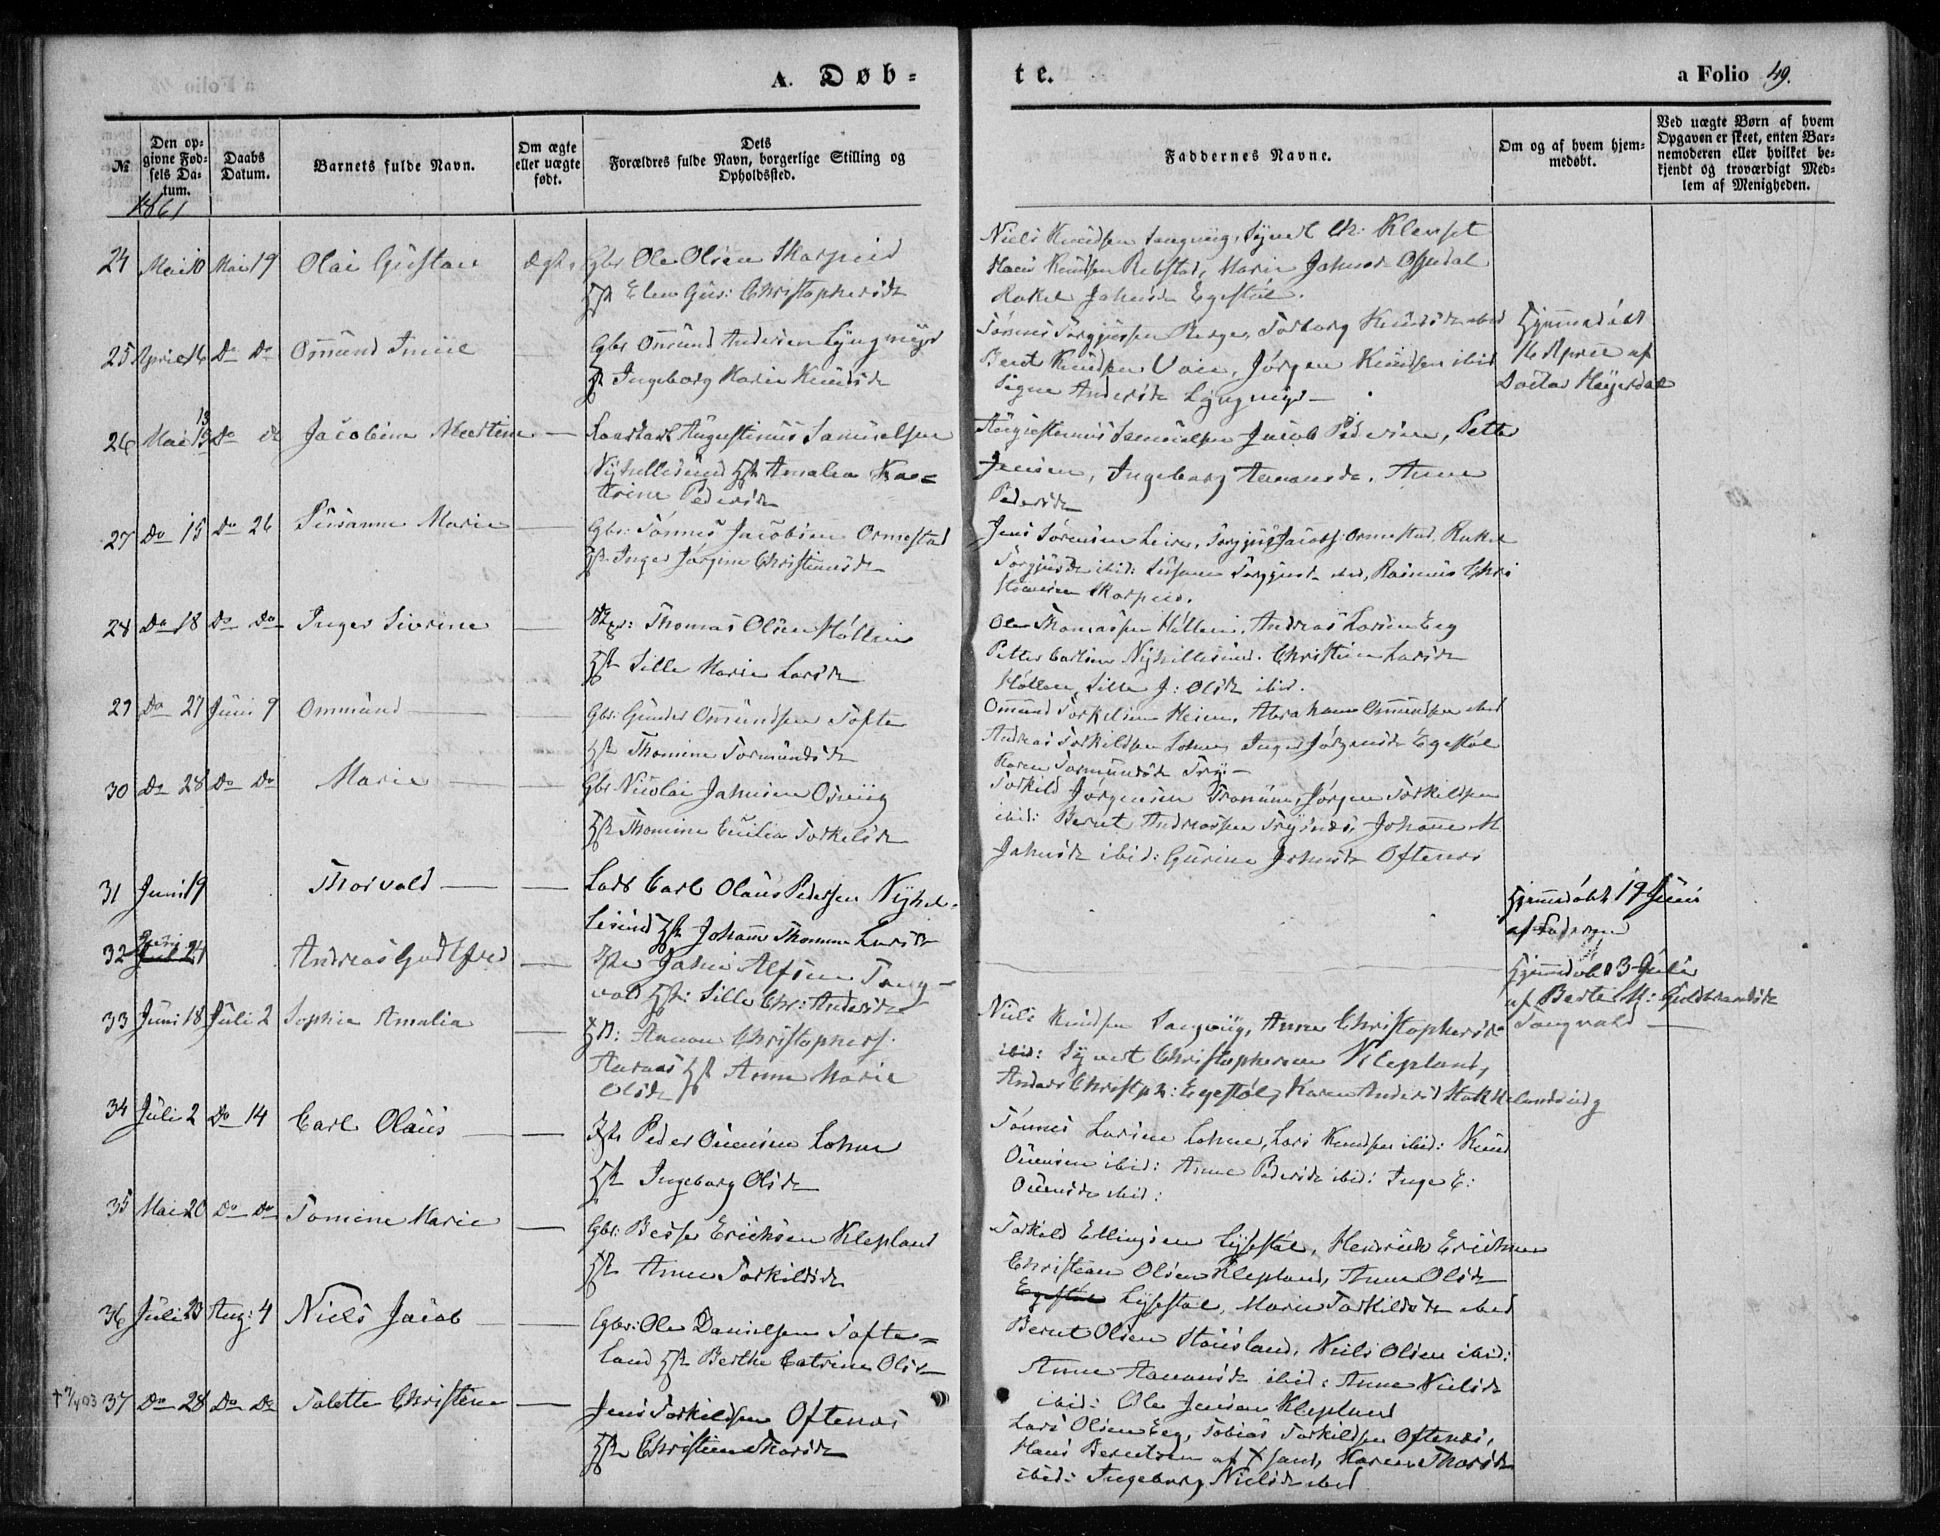 A. Døb-
te.
a Folio 49.
№
Den op-
givne Fød-
sels Da-
tum.
Daabs
Datum.
Barnets fulde Navn.
Om ægte
eller uægte
født.
Dets
Forældres fulde Navn, borgerlige Stilling og
Opholdssted.
Faddernes Navne.
Om og af hvem hjem-
medøbt.
Ved uægte Børn af hvem
Opgaven er skeet, enten Bar-
nemoderen eller hvilket be-
kjendt og troværdigt Med-
lem af Menigheden.
1861
24 Mai 10 Mai 19 Olai Gustav Ægte Gbr Ole Olsen Skarpeid
Hst Elen Gur: Christophersdt
Niels Knudsen Langvig, Syvert Ch: Klepset
Hans Knudsen Rebstad, Marie Jahnsd
Rakel Jahnsdt Egestøl.
25 April 16 Do Do Omund — Gbr Omund Andersen Lyngmyr
Hst Ingeborg Marie Knudsdt
Tønnes Torgjussen Berge, Torborg Knudsdt ibid
Bent Knudsen Vaie, Jørgen Knudsen ibid
Signe Andersdt Lyngmyr —
Hjemmedøbt
16 April af
Doctor Heyerdal
26 Mai 13 Do do Jacobine Martine — Augustinus Samuelsen
Nyhellesund Hst Amalia Ka=
trine Pedersdt
Augustinus Samuelsen Jacob Pedersen, Petter
Jensen, Ingeborg Aanonsdt. Anne
Pedersdt
27 Do 15 Do 26 Susanne Marie — Gbr: Tønnes Jacobsen Ormestad
Hst Inger Jørgine Christensdt
Jens Sørensen Leire, Torgjus Jacobs: Ormestad, Rakel
Torgjusdt ibid: Susanne Torgjusdt ibid, Rasmus Chri
stensen Skarpeid.
28 Do 18 Do Do Inger Sivrine — Thomas Olsen Høllen
Hst Sille Marie Larsdt
Ole Thomassen Høllen, Andreas Larsen Eeg
Petter Carlsen Nyhellesund. Christine Larsdt
Høllen, Sille J: Olsdt ibid.
29 Do 27 Juni 9 Ommund — — Gbr: Gunder Omundsen Tofte
Hst Thomine Tormundsdt
Omund Torkelsen Heien, Abraham Omundsen ibid
Andreas Torkildsen Lohne, Inger Jørgensdt Egestøl
Karen Tormundsdt
30 Do 28 Do Do Marie — — Gbr Nicolai Jahnsen Osvig
Hst Thomine Cecilia Torkelsdt
Torkild Jørgensen Tronum, Jørgen Torkildsen
ibid: Bernt Andreassen Trysnes, Johanne M
Jahnsdt ibid: Gurine Jahnsdt Oftenes
31 Juni 19 Thorvald — — Lods Carl Olaus Pedersen Nyhel-
lesund Hst Johanne Thomine Larsdt
Hjemmedøbt 19 Juni
af Faderen
32 24 Andreas Gudtfred — Jahn Alfsen Tang-
vald Hst: Sille Chr: Andersdt
Hjemmedøbt 3 Juli
af Berte M: Guldbrandsdt
Tangvald —
33 Juni 18 Juli 2 Sophie Amalia — Aanon Christophers:
Aaraas Hst Anne Marie
Olsdt
Niels Knudsen Langvig, Anne Christophersdt
ibid: Syvert Christophersen Klepland,
Anders Christph: Egestøl, Karen Andersd
34 Juli 2 Do 14 Carl Olaus — — Peder Ouensen Lohne
Hst Ingeborg Olsdt
Tønnes Larsen Lohne, Lars Knudsen ibid: Knud
Ouensen ibid: Anne Pedersdt ibid: Inge E:
Ouensdt ibid:
35 Mai 20 Do Do Tomine Marie — Gbr: Besse Erichsen Klepland
Hst Anne Torkildsdt
Torkild Ellingsen Lysestøl, Hendrick Erichsen
Christian Olsen Klepland, Anne Olsdt
Egestøl Lysestøl, Marie Torkildsdt ibid
36 Juli 23 Aug: 4 Niels Jacob — — Gbr: Ole Danielsen Tofte=
land Hst Berthe Catrine Olsdt
Bernt Olsen Stousland, Niels Olsen ibid:
Anne Aanonsdt ibid: Anne Nielsdt
ibid: Ole Jensen Klepland
37 Do 28 Do Do Tolette Christine — Jens Torkildsen Oftenes
Hst Christine Thorsdt
Lars Olsen Eeg, Tobias Torkildsen Oftenes,
Hans Berntsen af Xsand, Karen Thorsdt
ibid: Ingeborg Nielsdt ibid